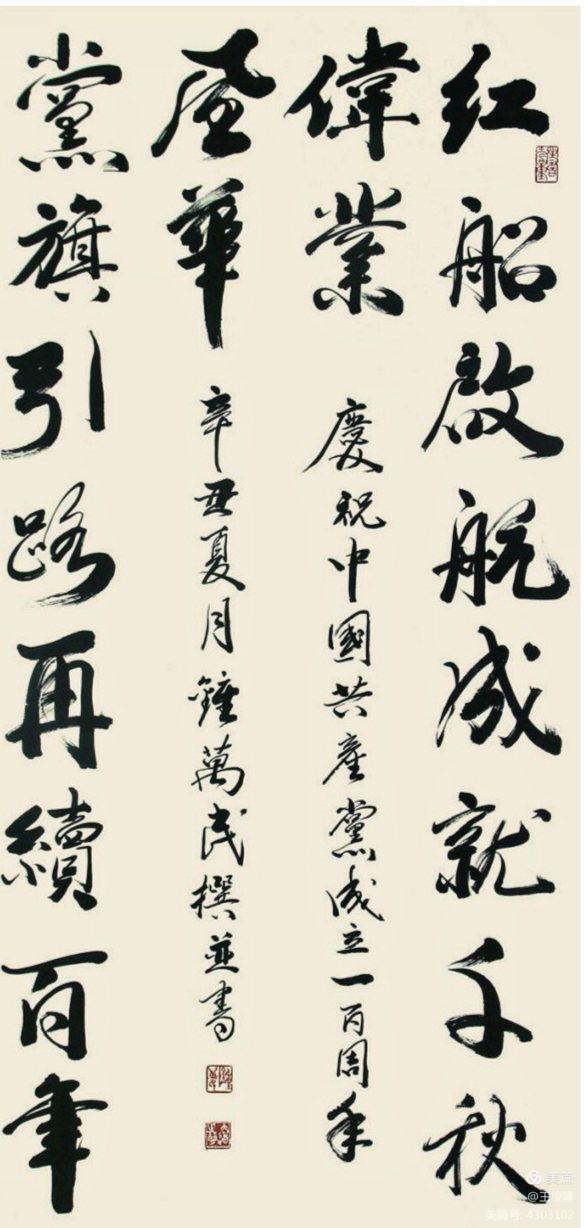 红船啟航成就千秋
偉業
慶祝中國共產黨成立一百周年
黨旗引路再續百年
風華
辛丑夏月鍾萬民撰並書
美篇
美篇号: 4303102